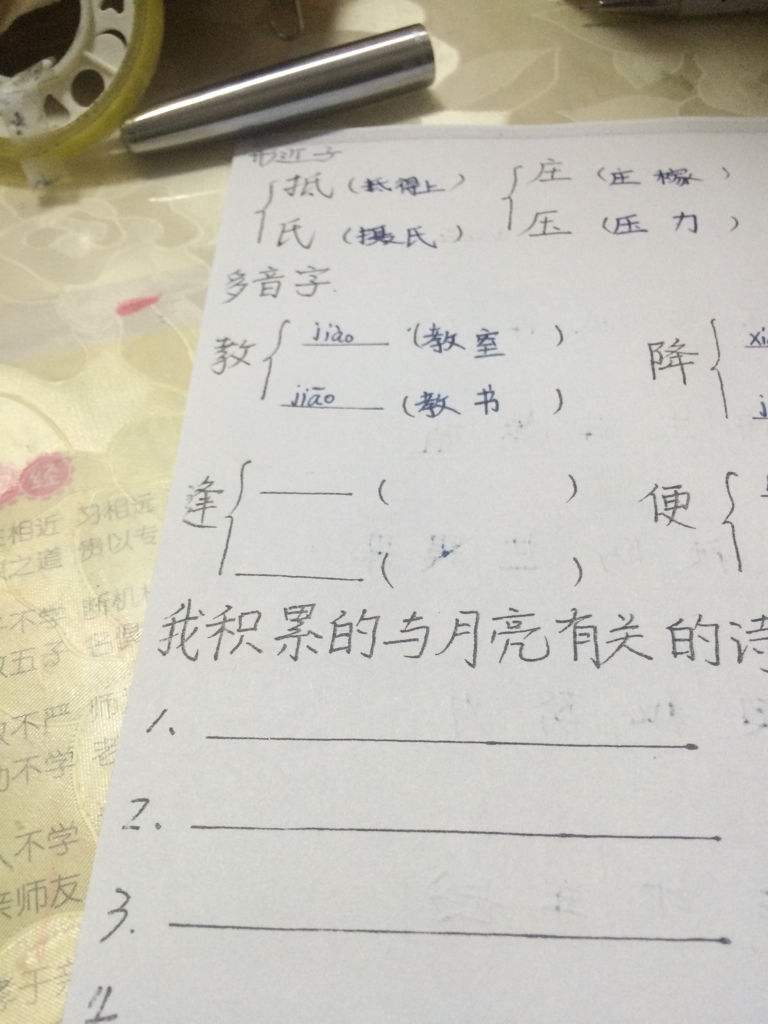 形近字
抵（抵得上） 庄（庄稼）
氏（摄氏） 压（压力）
多音字
教 jiào （教室 ） 降 xi
jiāo （教书 ） j
逢 （ ） 便
（ ）
我积累的与月亮有关的诗
1.
2.
3.
相近 习相远
之道 贵以专
不学 断机
五子 名俱
不严 师
不学 老
不学
师友
于